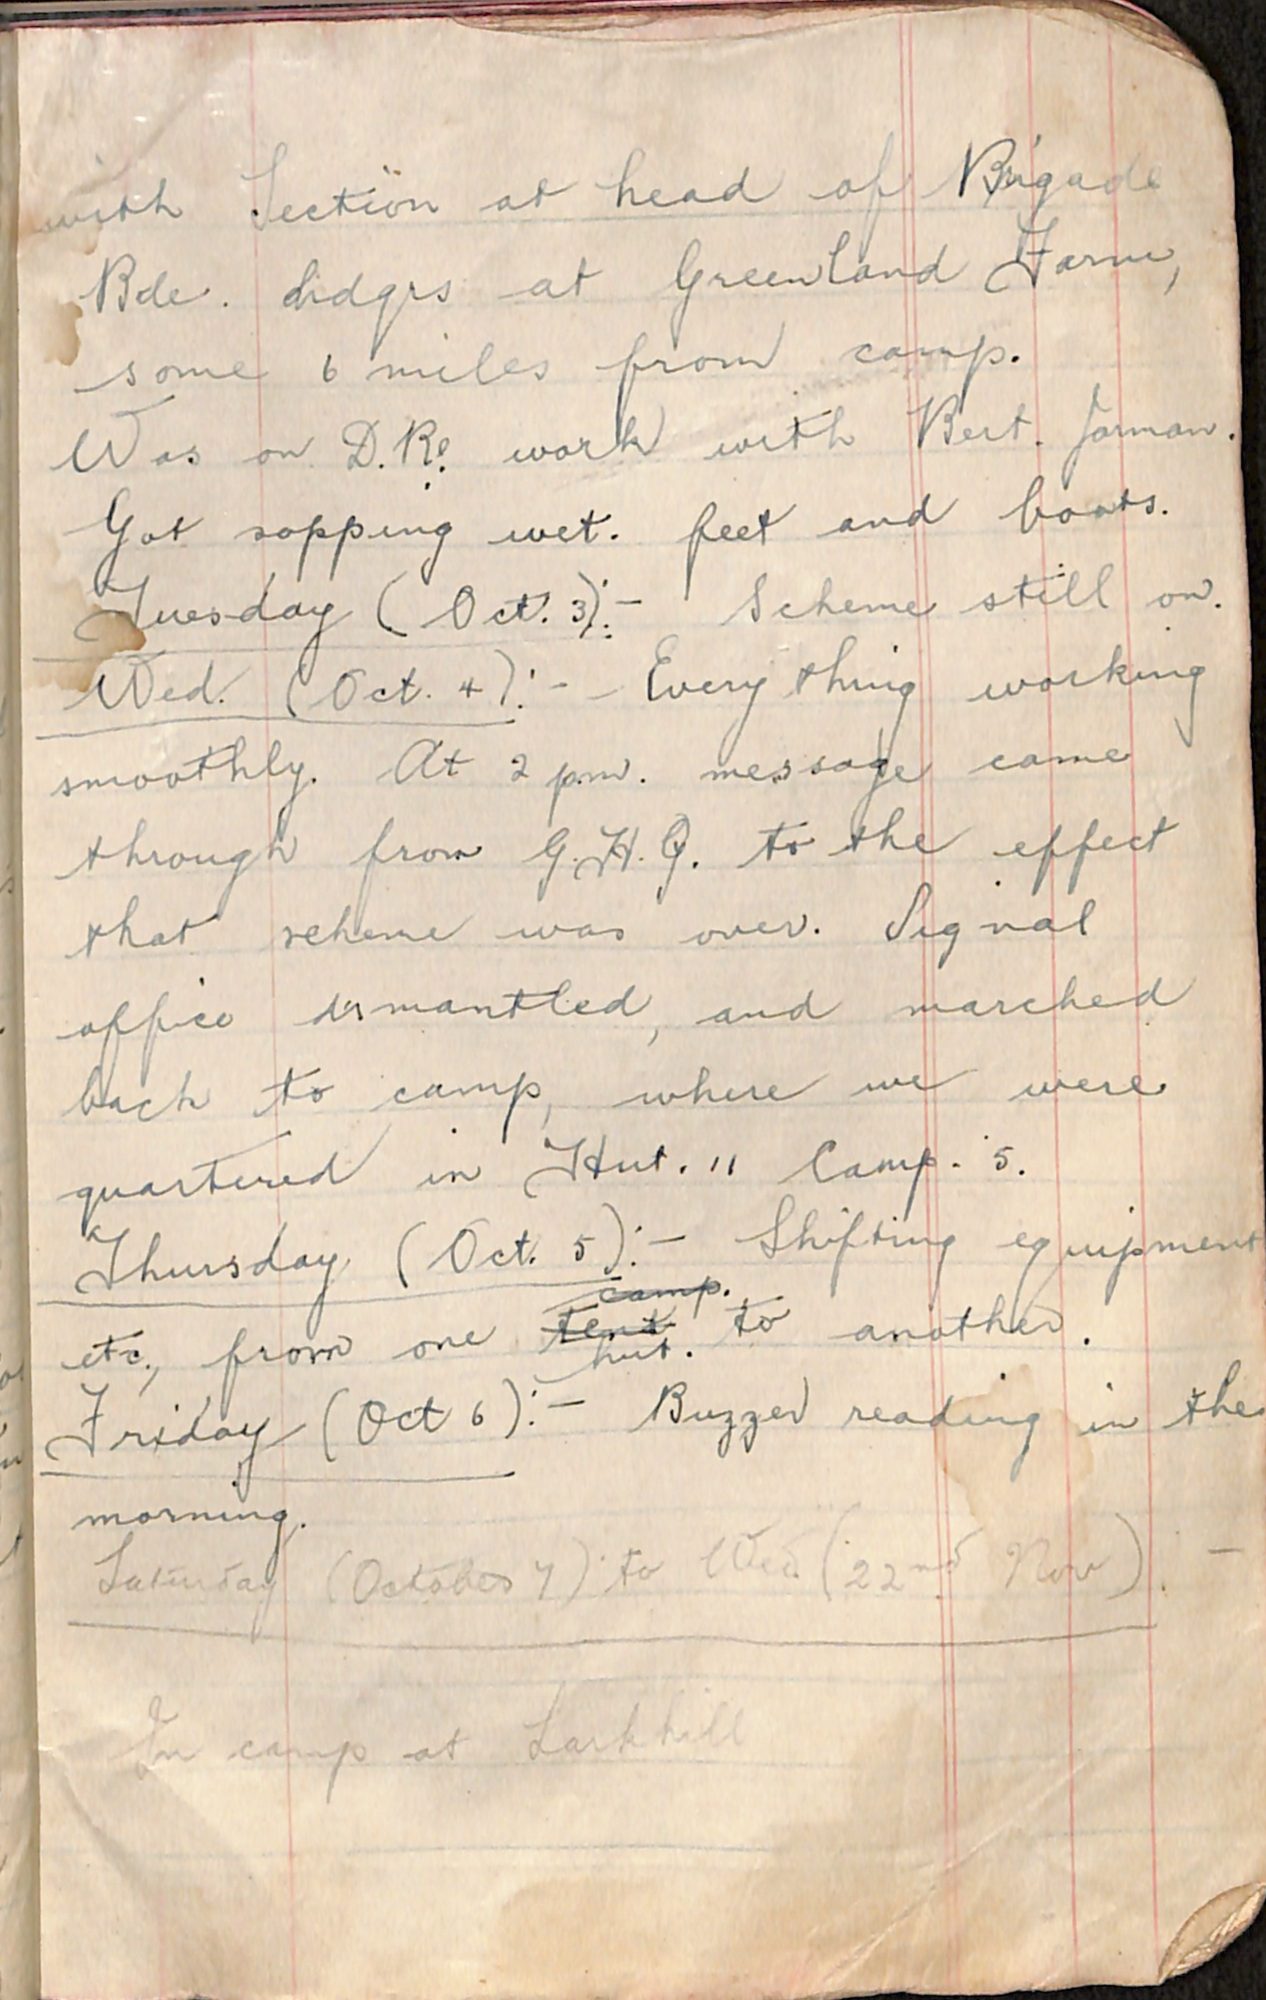 with Section at head of Brigade
Bde. hdqrs at Greenland Farm,
some 6 miles from camp.
Was on D.R. work with Bert. Jarman.
Got sopping wet. feet and boots.
Tuesday (Oct. 3):- Scheme still on.
Wed. (Oct. 4):- Everything working
smoothly. At 2 p.m. message came
through from G.H.Q. to the effect
that scheme was over. Signal
office dismantled, and marched
back to camp, where we were
quartered in Hut. 11 Camp. 5.
Thursday (Oct. 5):- Shifting equipment
camp.
etc., from one tent to another.
hut.
Friday (Oct 6):- Buzzer reading in the
morning.
Saturday (October 7) to Wed. (22nd Nov):-
In camp at Larkhill